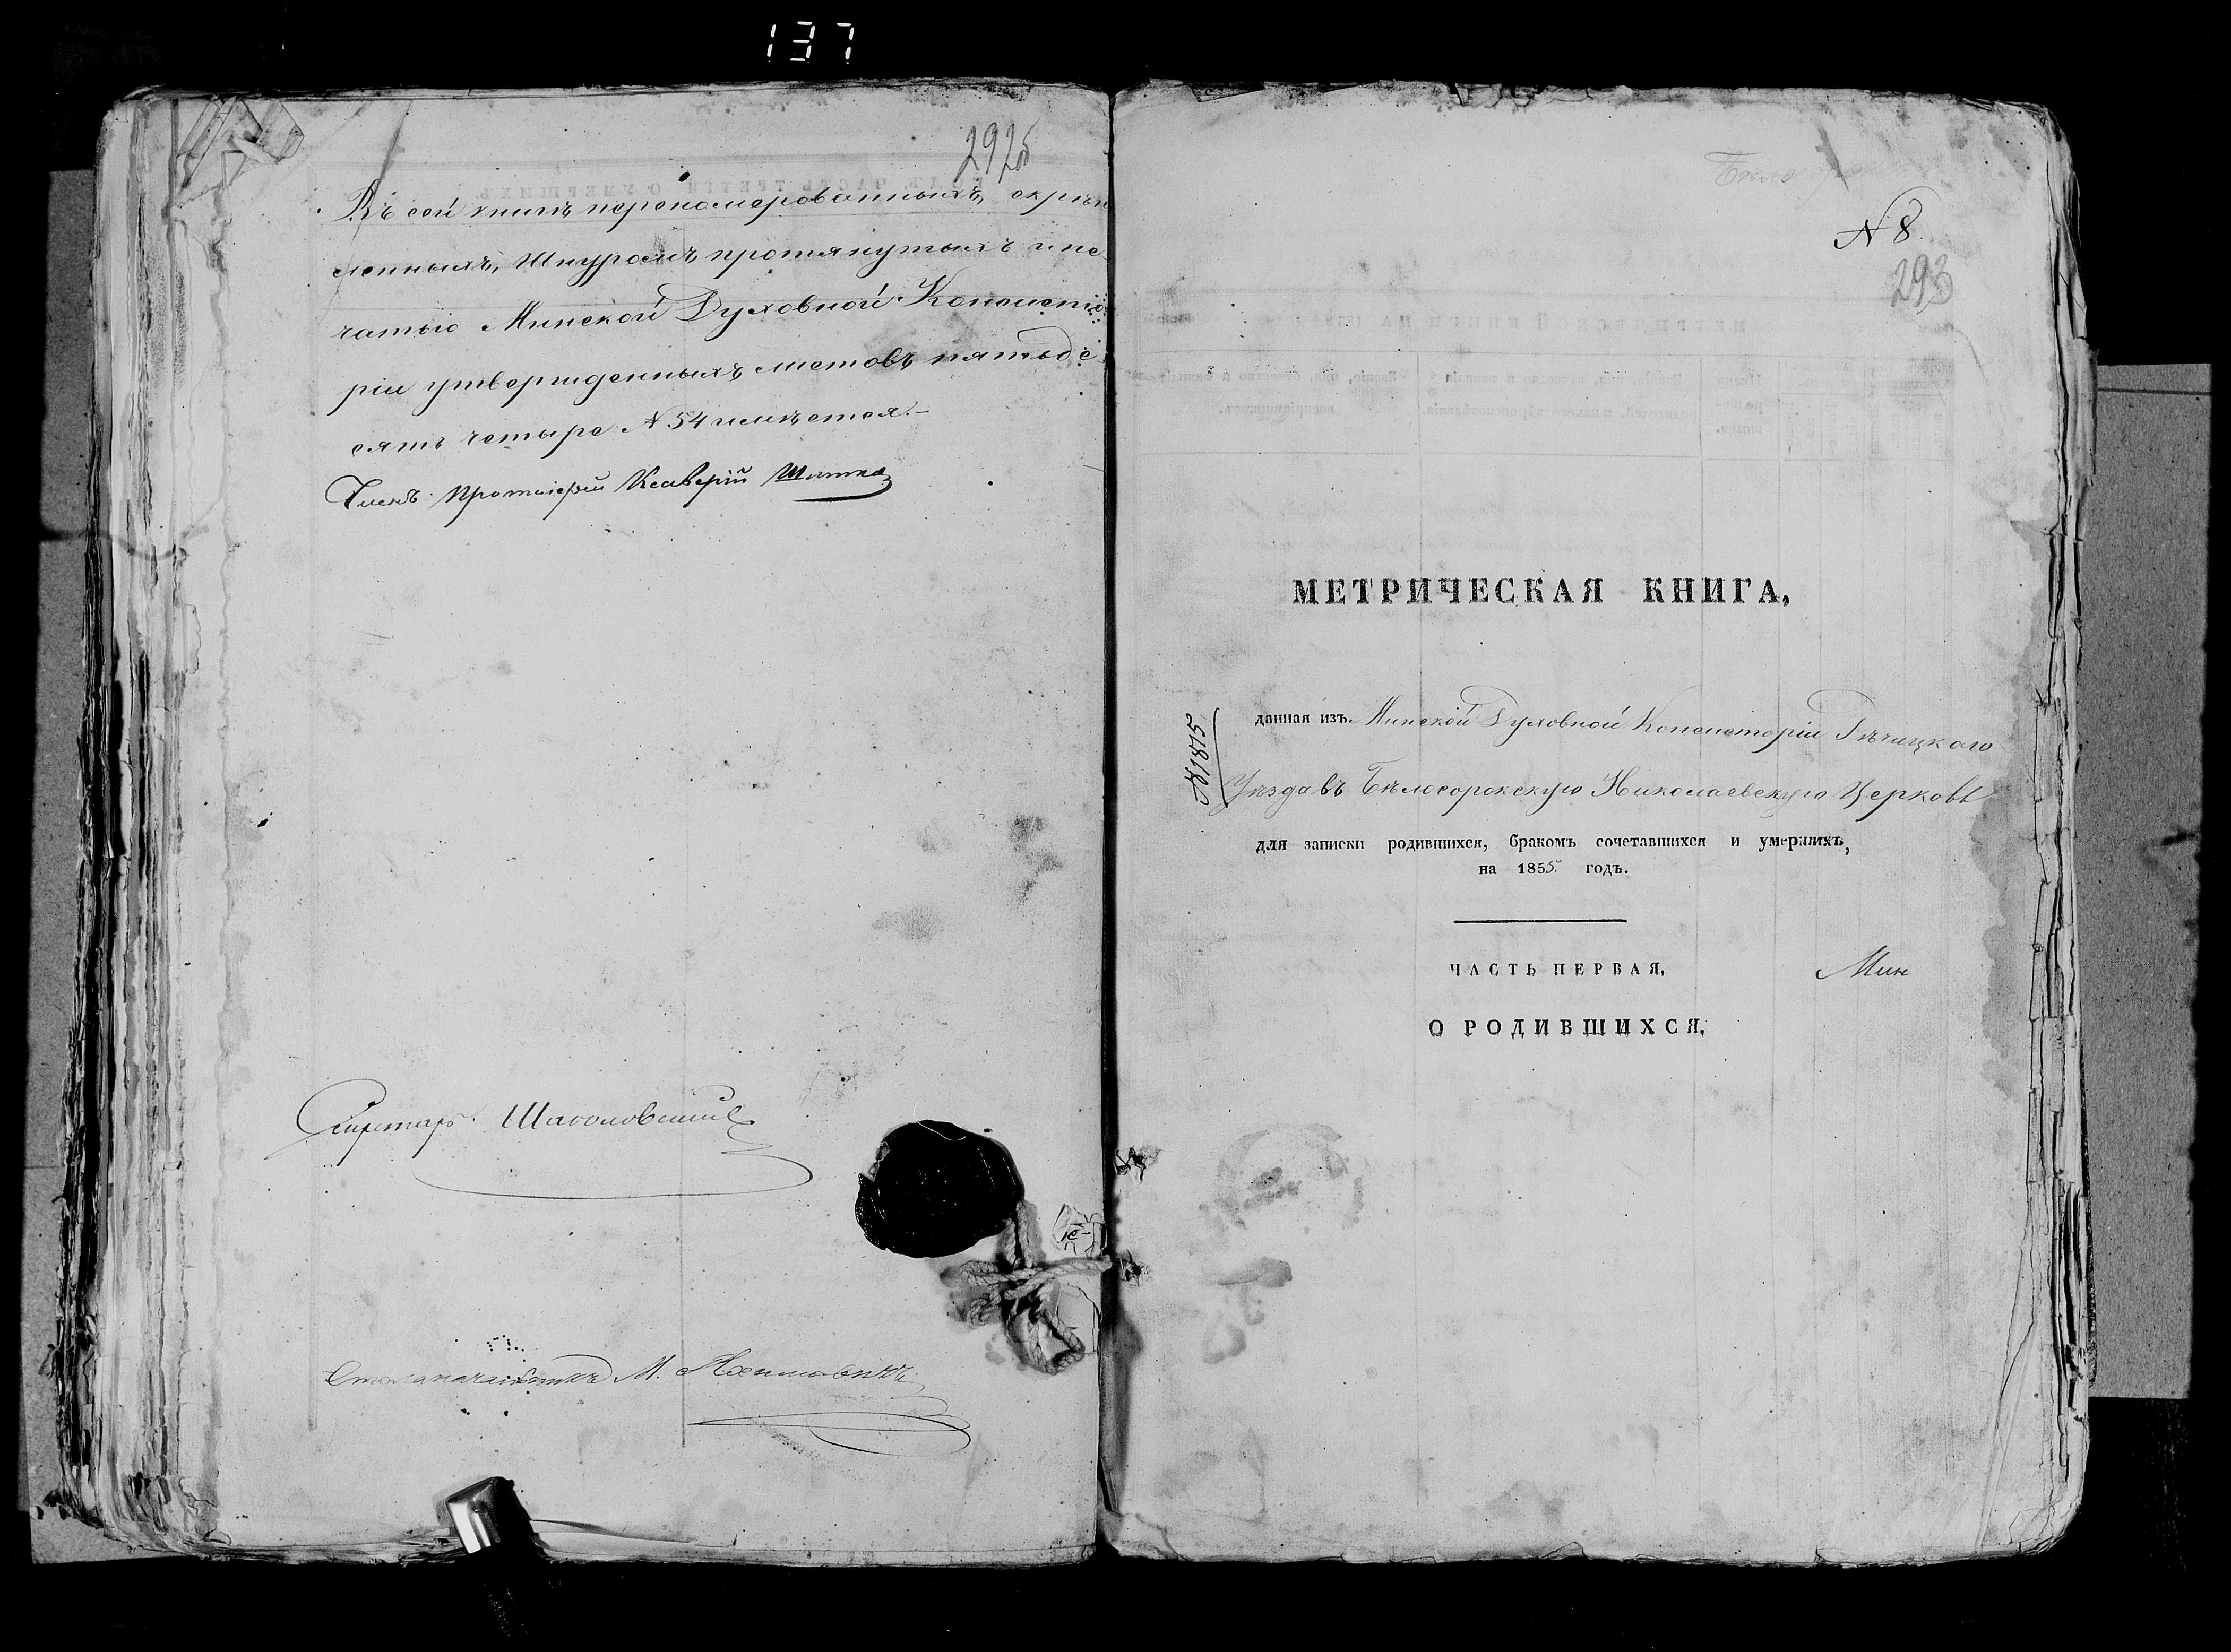 137
292об
Въ сей книгѣ перепомерованныхъ, скрѣп
ленныхъ, Шнуромъ протянутыхъ и пе
чатью Минской Духовной Консисто
ріи утвержденныхъ листовъ пятьде
сятъ четыре № 54 имѣется.—
Членъ Протоіерей Ксаверій
Секретарь
Столоначальникъ М.
№ 8.
293
МЕТРИЧЕСКАЯ КНИГА,
№ 1875
данная изъ Минской Духовной Консисторіи Рѣчицкаго
Уѣзда въ Бѣлосорокскую Николаевскую Церковь
для записки родившихся, бракомъ сочетавшихся и умершихъ,
на 1855 годъ.
ЧАСТЬ ПЕРВАЯ,
Мин
О РОДИВШИХСЯ,